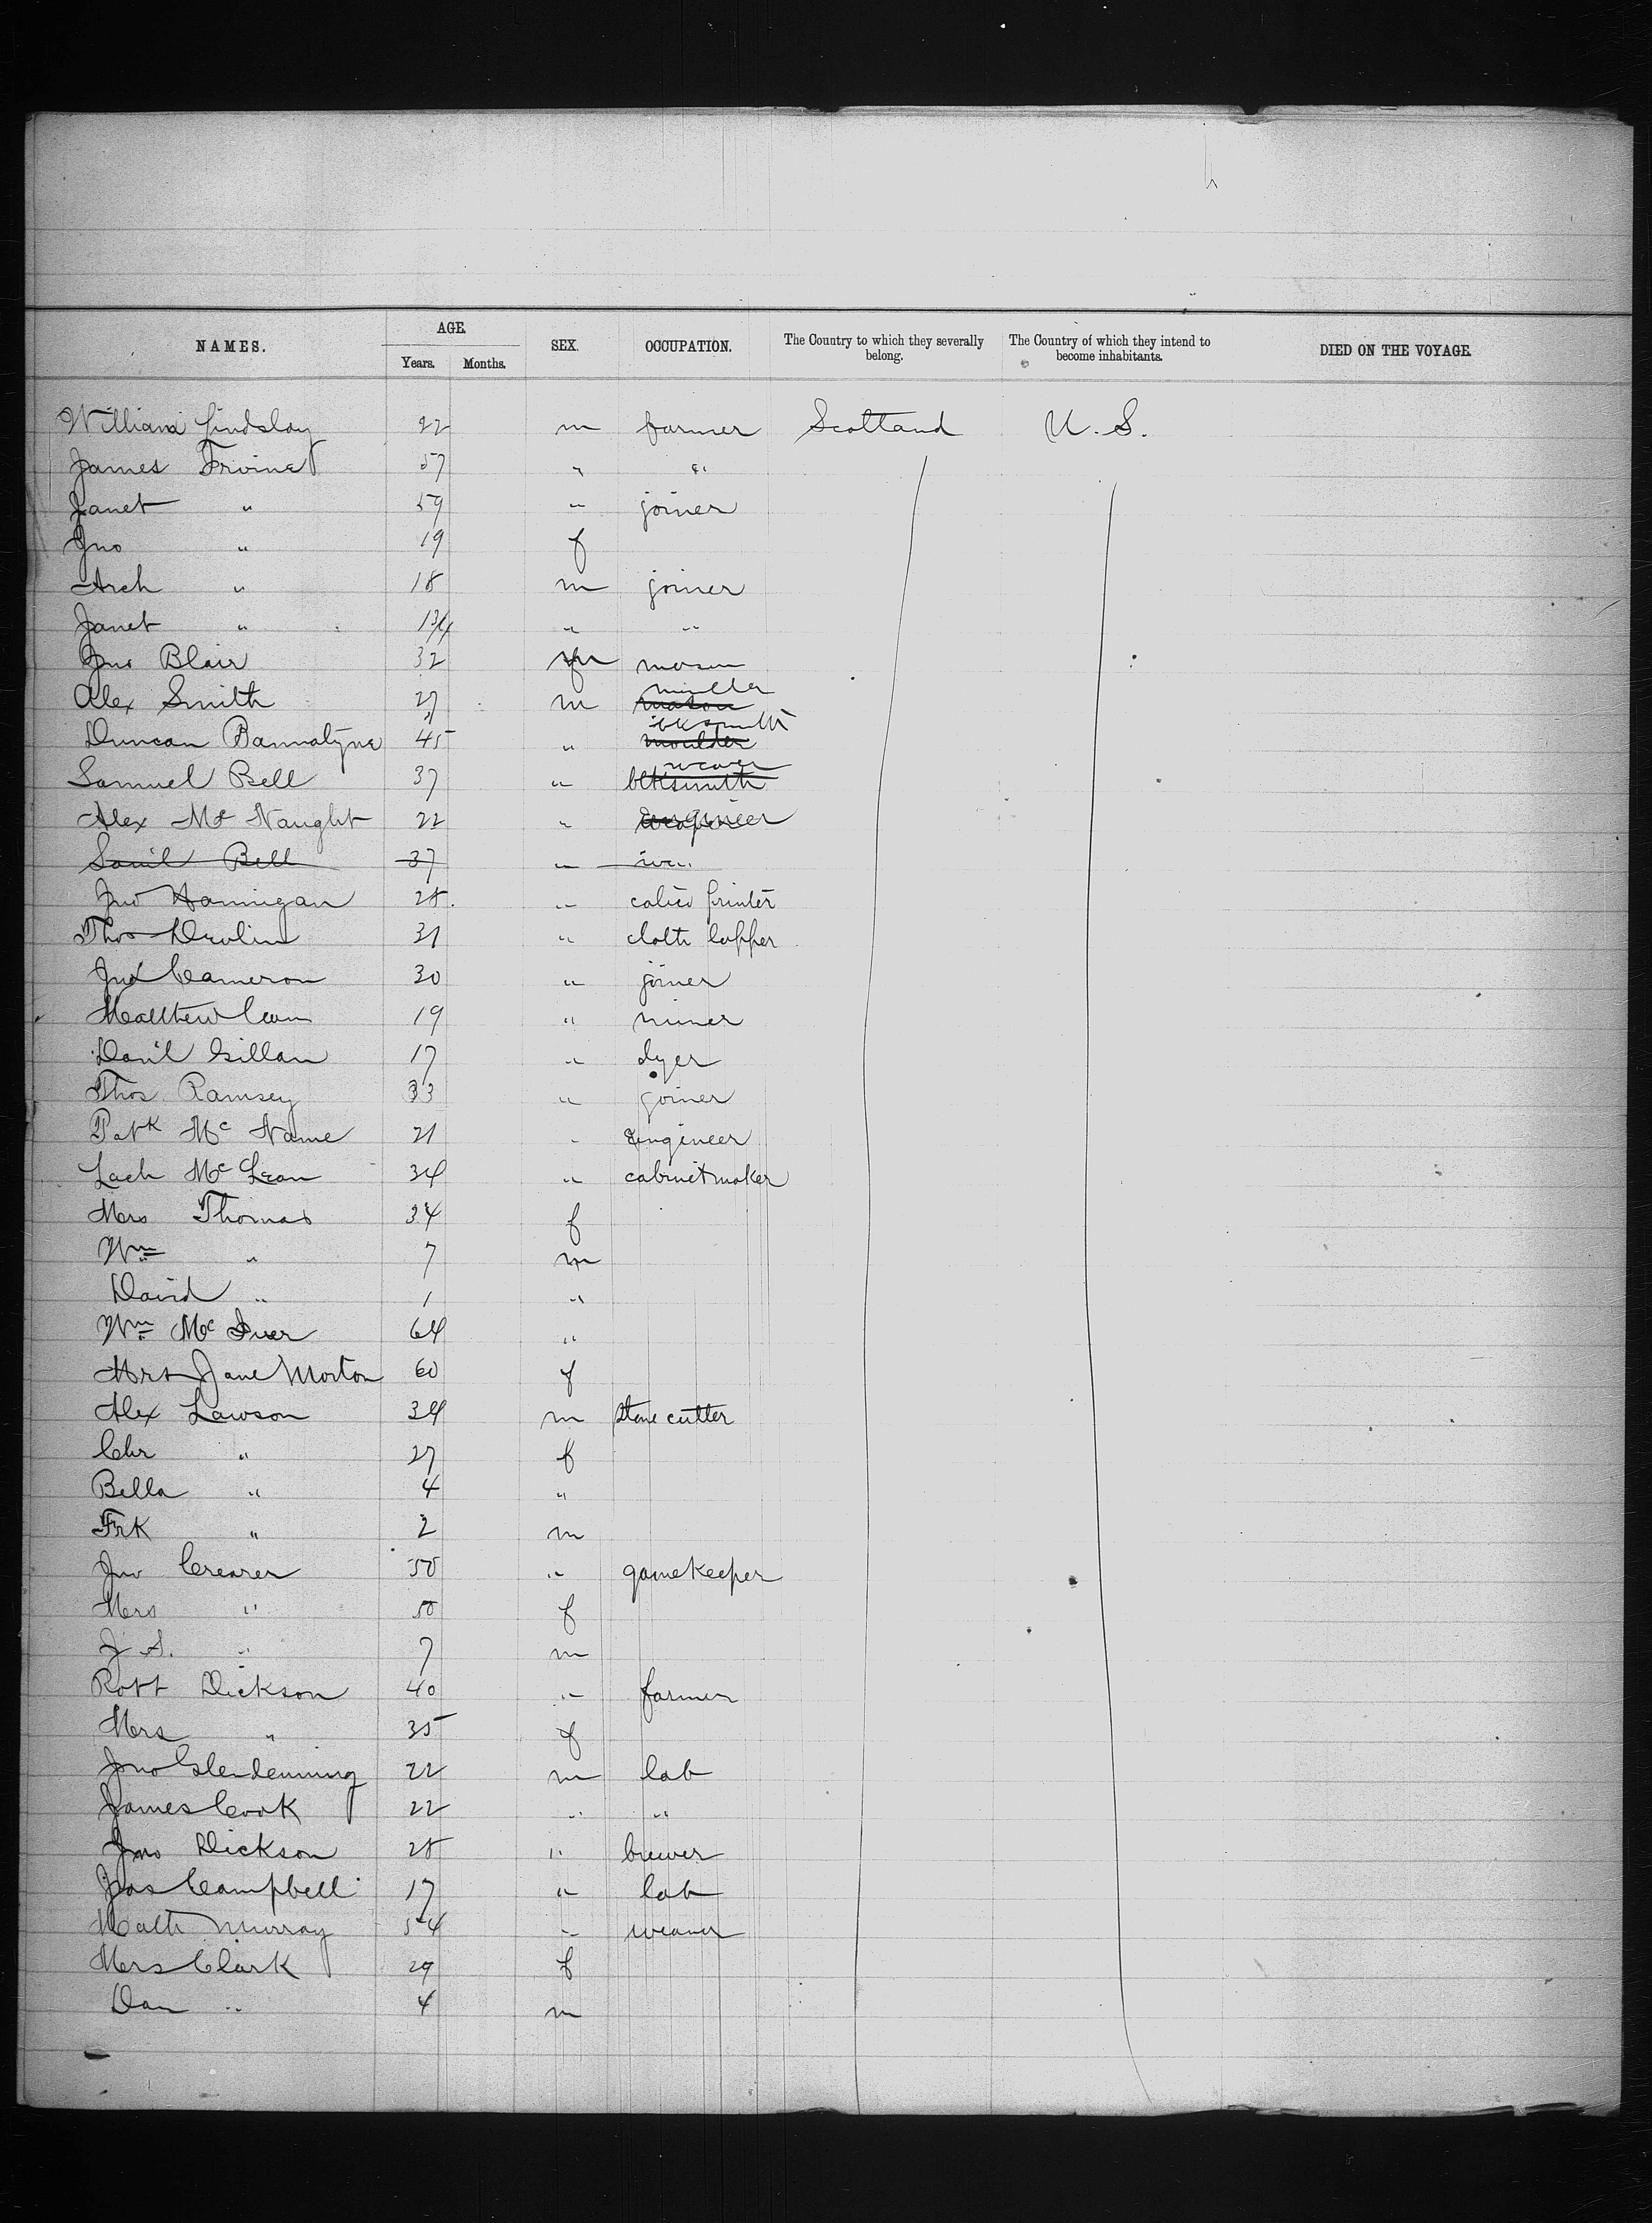 NAMES. AGE. SEX. OCCUPATION. The Country to which they severally belong. The Country of which they intend to become inhabitants. DIED ON THE VOYAGE.
Years. Months.
William Lindslay 22 m farmer Scotland U.S.
James Irvine 57 " "
Janet " 59 " joiner
Jno " 19 f
Arch " 18 m joiner
Janet " 13/4 " "
Jno Blair 32 m mason
Alex Smith 27 m mason miller
Duncan Bannatyne 45 " moulder blksmith
Samuel Bell 37 " blksmith weaver
Alex McNaught 22 " engineer
Saml Bell 37 "
Jno Hannigan 28 " calico printer
Thos Devlin 31 " cloth lapper
Jno Cameron 30 " joiner
Matthew 19 " miner
Danl Gillan 17 " dyer
Thos Ramsey 33 " joiner
Patk McName 21 " engineer
Lach McLean 34 " cabinetmaker
Mrs Thomas 34 f
Wm " 7 m
David " 1 "
Wm McIver 64 "
Mrs Jane Morton 60 f
Alex Lawson 34 m stone cutter
Chr " 27 f
Bella " 4 "
Frk " 2 m
Jno Crearer 50 " gamekeeper
Mrs " 50 f
J.S. " 7 m
Robt Dickson 40 " farmer
Mrs " 35 f
Jno Glendenning 22 m lab
James Cook 22 " "
Jno Dickson 28 " brewer
Jas Campbell 17 " lab
Math Murray 54 " weaver
Mrs Clark 29 f
Dan " 4 m